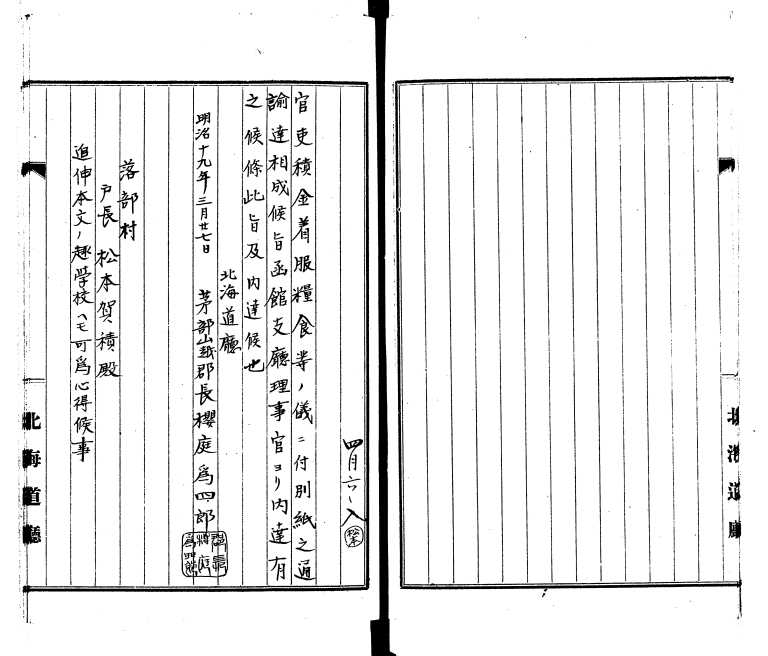 四月六日入
松本
官吏積金着服糧食等ノ儀ニ付別紙之通
諭達相成候旨函館支廳理事官ヨリ内達有
之候條此旨及内達候也
北海道廳
明治十九年三月廿七日　茅部山越郡長櫻庭為四郎
落部村
戸長　松本賀積殿
追伸本文ノ趣学校ヘモ可為心得候事
北海道廳
北海道廳